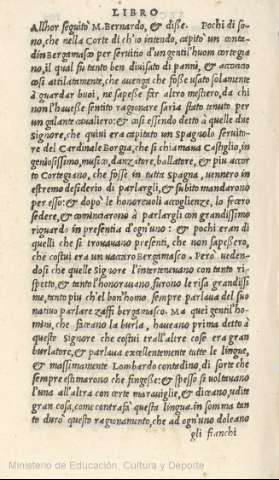 LIBRO
Allhor seguitò M. Bernardo, & disse. Pochi dì so-
no, che nella Corte di ch'io intendo, capitò un conta-
din Bergamasco per seruitio d'un gentil'huom cortegia
no, il qual fu tanto ben diuisato di panni, & acconcio
così attilatamente, che auenga che fosse usato solamente
à guardar buoi, ne sapesse far altro mestiero, da chi
non l'hauesse sentito ragionare saria stato tenuto per
un galante caualiero: & così essendo detto à quelle due
Signore, che quiui era capitato un Spagnolo seruito-
re del Cardinale Borgia, che si chiamaua Castiglio, in
geniosissimo, musico, danzatore, ballatore, & piu accor
to Cortegiano, che fosse in tutta Spagna, uennero in
estremo desiderio di parlargli, & subito mandarono
per esso: & dopò le honoreuoli accoglienze, lo fecero
sedere, & cominciarono à parlargli con grandissimo
riguardo in presentia d'ogn'uno: & pochi eran di
quelli che si trouauano presenti, che non sapessero,
che costui era un uaccaro Bergamasco. Pero ueden-
dosi che quelle Signore l'interteneuano con tanto ri-
spetto, & tanto l'honorauano, furono le risa grandissi
me, tanto piu ch'el bon'homo sempre parlaua del suo
natiuo parlare zaffi bergamasco. Ma quei gentil'ho-
mini, che faceano la burla, haueano prima detto à
queste Signore che costui trall'altre cose era gran
burlatore, & parlaua excellentemente tutte le lingue,
& massimamente Lombardo contadino, di sorte che
sempre estimarono che fingesse: & spesso si uoltauano
l'una all'altra con certe marauiglie, & diceano, udite
gran cosa, come contrafà questa lingua. in somma tan
to durò questo ragionamento, che ad ogn'uno doleano
gli fianchi
Ministerio de Educación, Cultura y Deporte